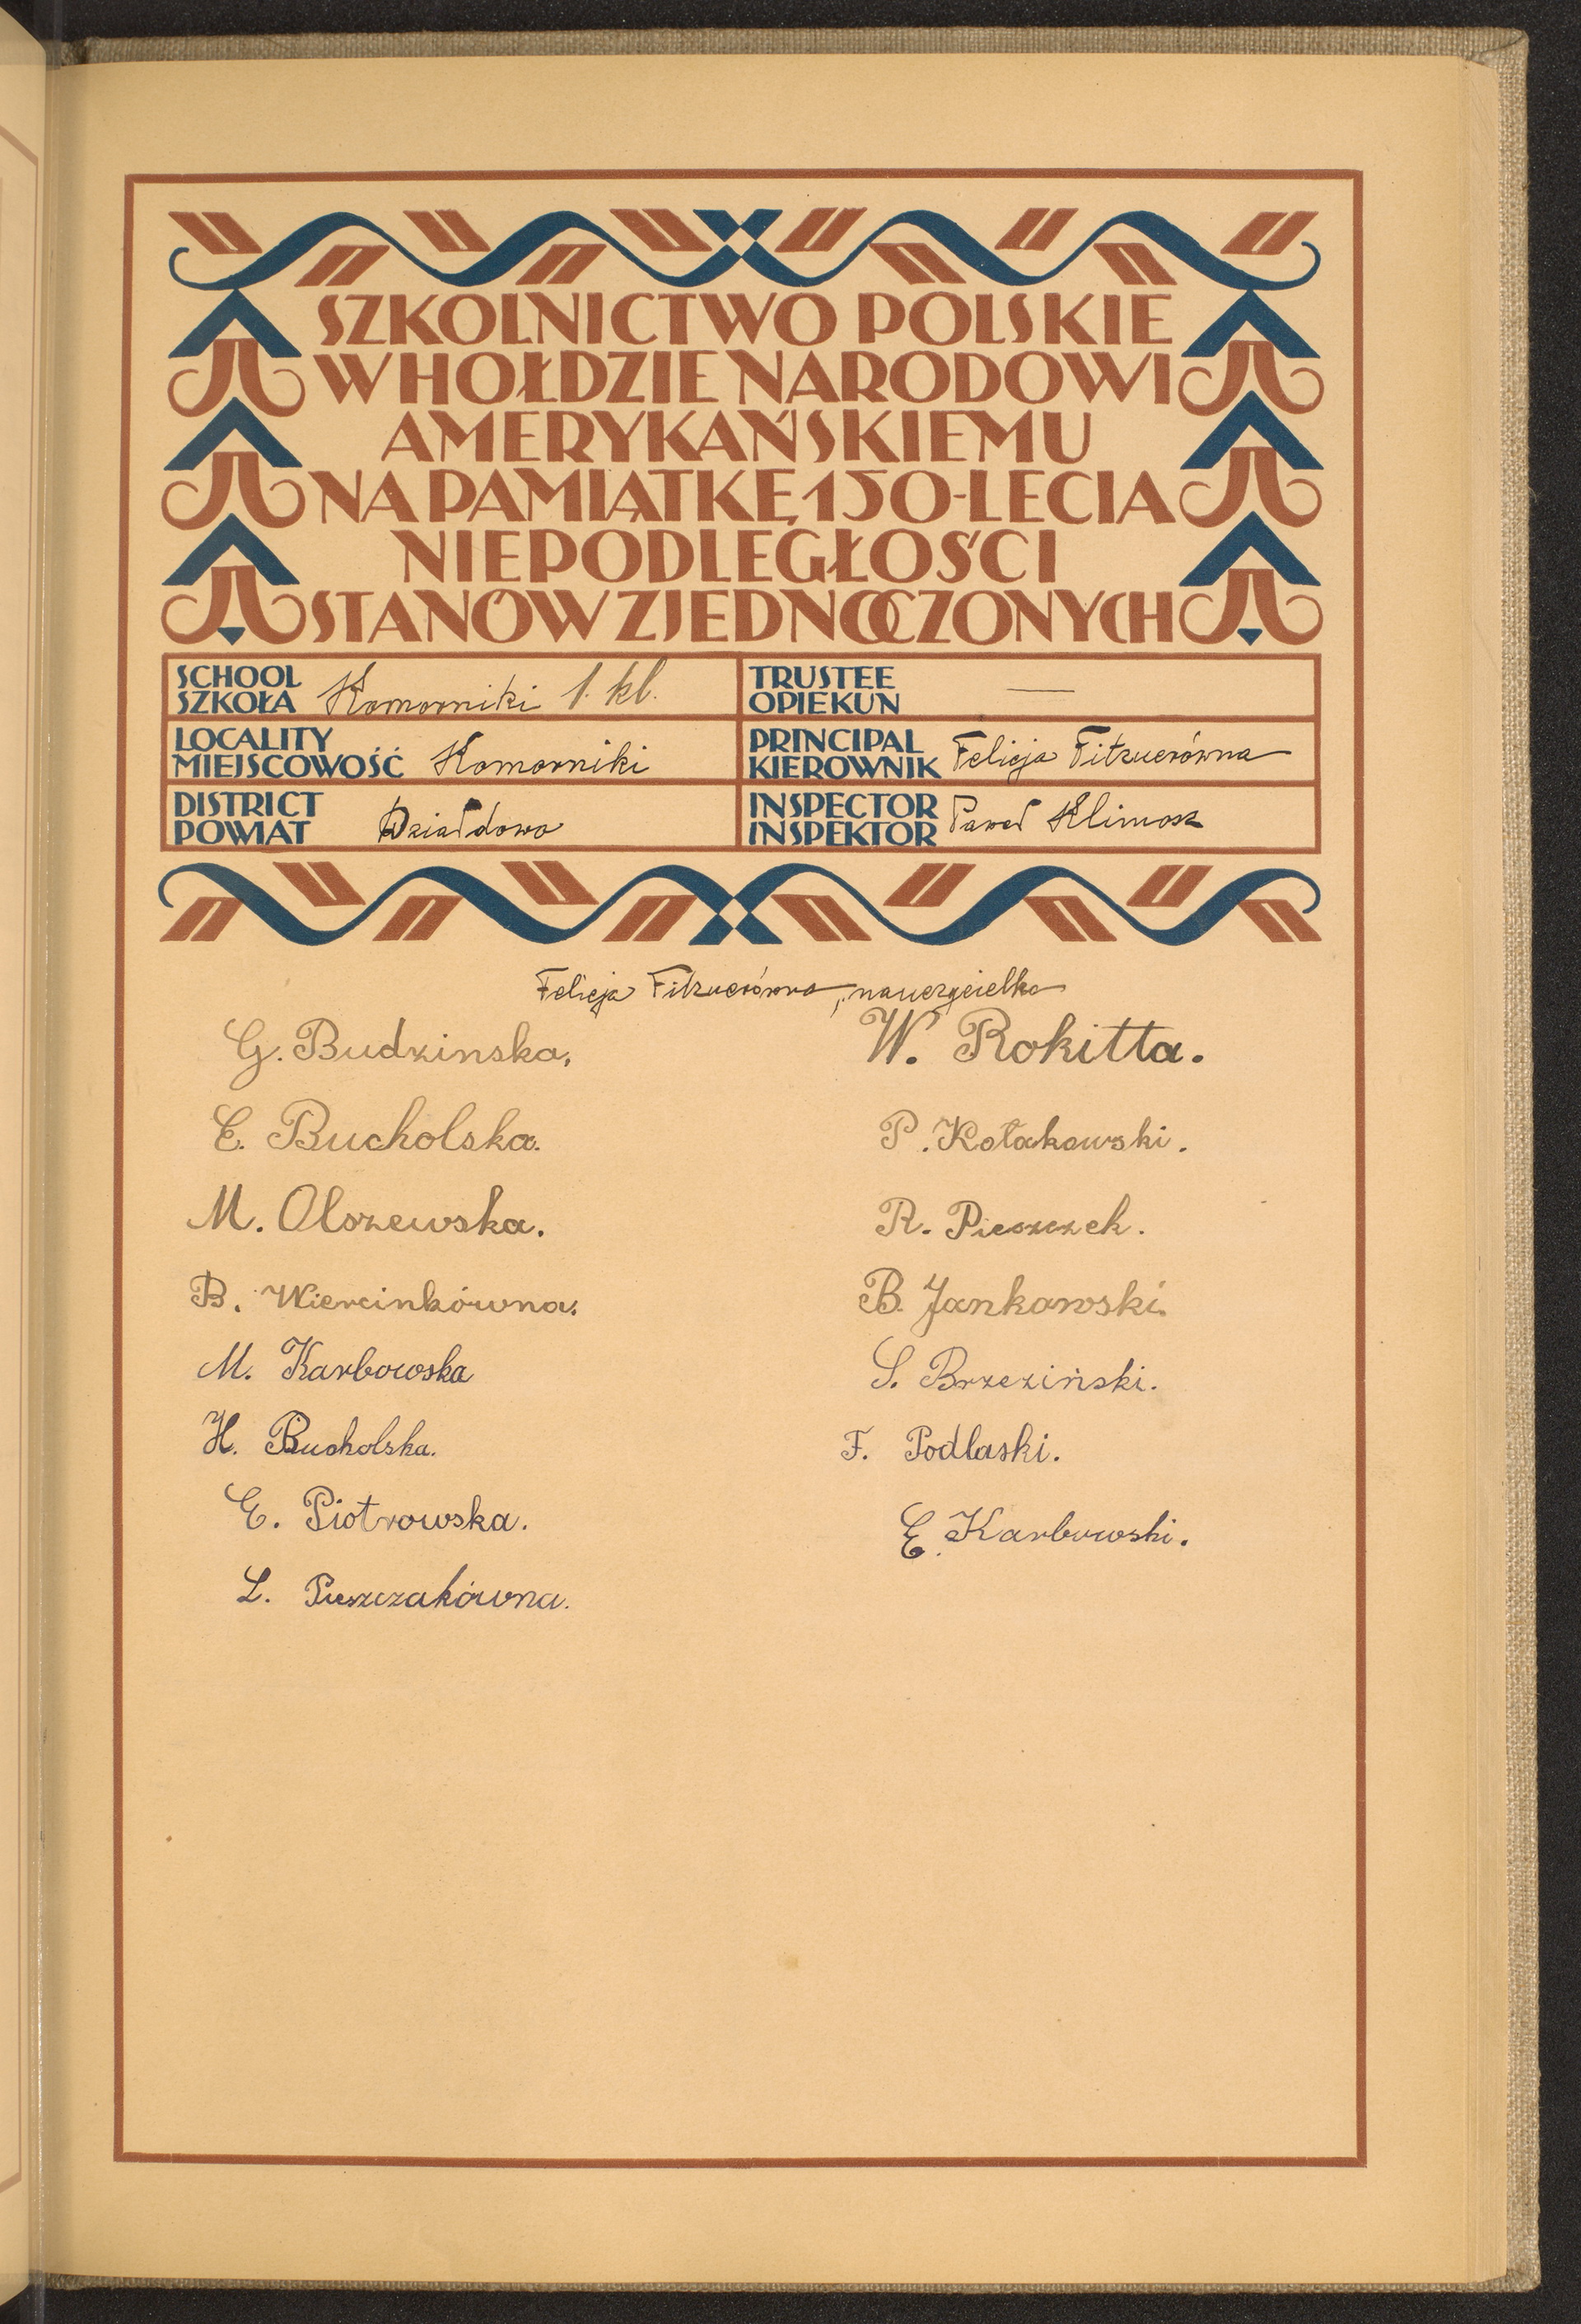 SZKOLNICTWO POLSKIE
W HOŁDZIE NARODOWI
AMERYKAŃSKIEMU
NA PAMIĄTKĘ 150-LECIA
NIEPODLEGŁOŚCI
STANÓW ZJEDNOCZONYCH
SCHOOL
SZKOŁA Komorniki 1. kl.
TRUSTEE
OPIEKUN —
LOCALITY
MIEJSCOWOŚĆ Komorniki
PRINCIPAL
KIEROWNIK Felicja Fitznerówna
DISTRICT
POWIAT Działdowo
INSPECTOR
INSPEKTOR Paweł Klimosz
Felicja Fitznerówna, nauczycielka
G. Budzinska,
E. Bucholska.
M. Olszewska.
B. Wiercinkówna.
M. Karbowska
H. Bucholska.
E. Piotrowska.
L. Pieszczakówna.
W. Rokitta.
P. Kołakowski.
R. Pieszczek.
B. Jankowski.
S. Brzeziński.
F. Podlaski.
E. Karbowski.